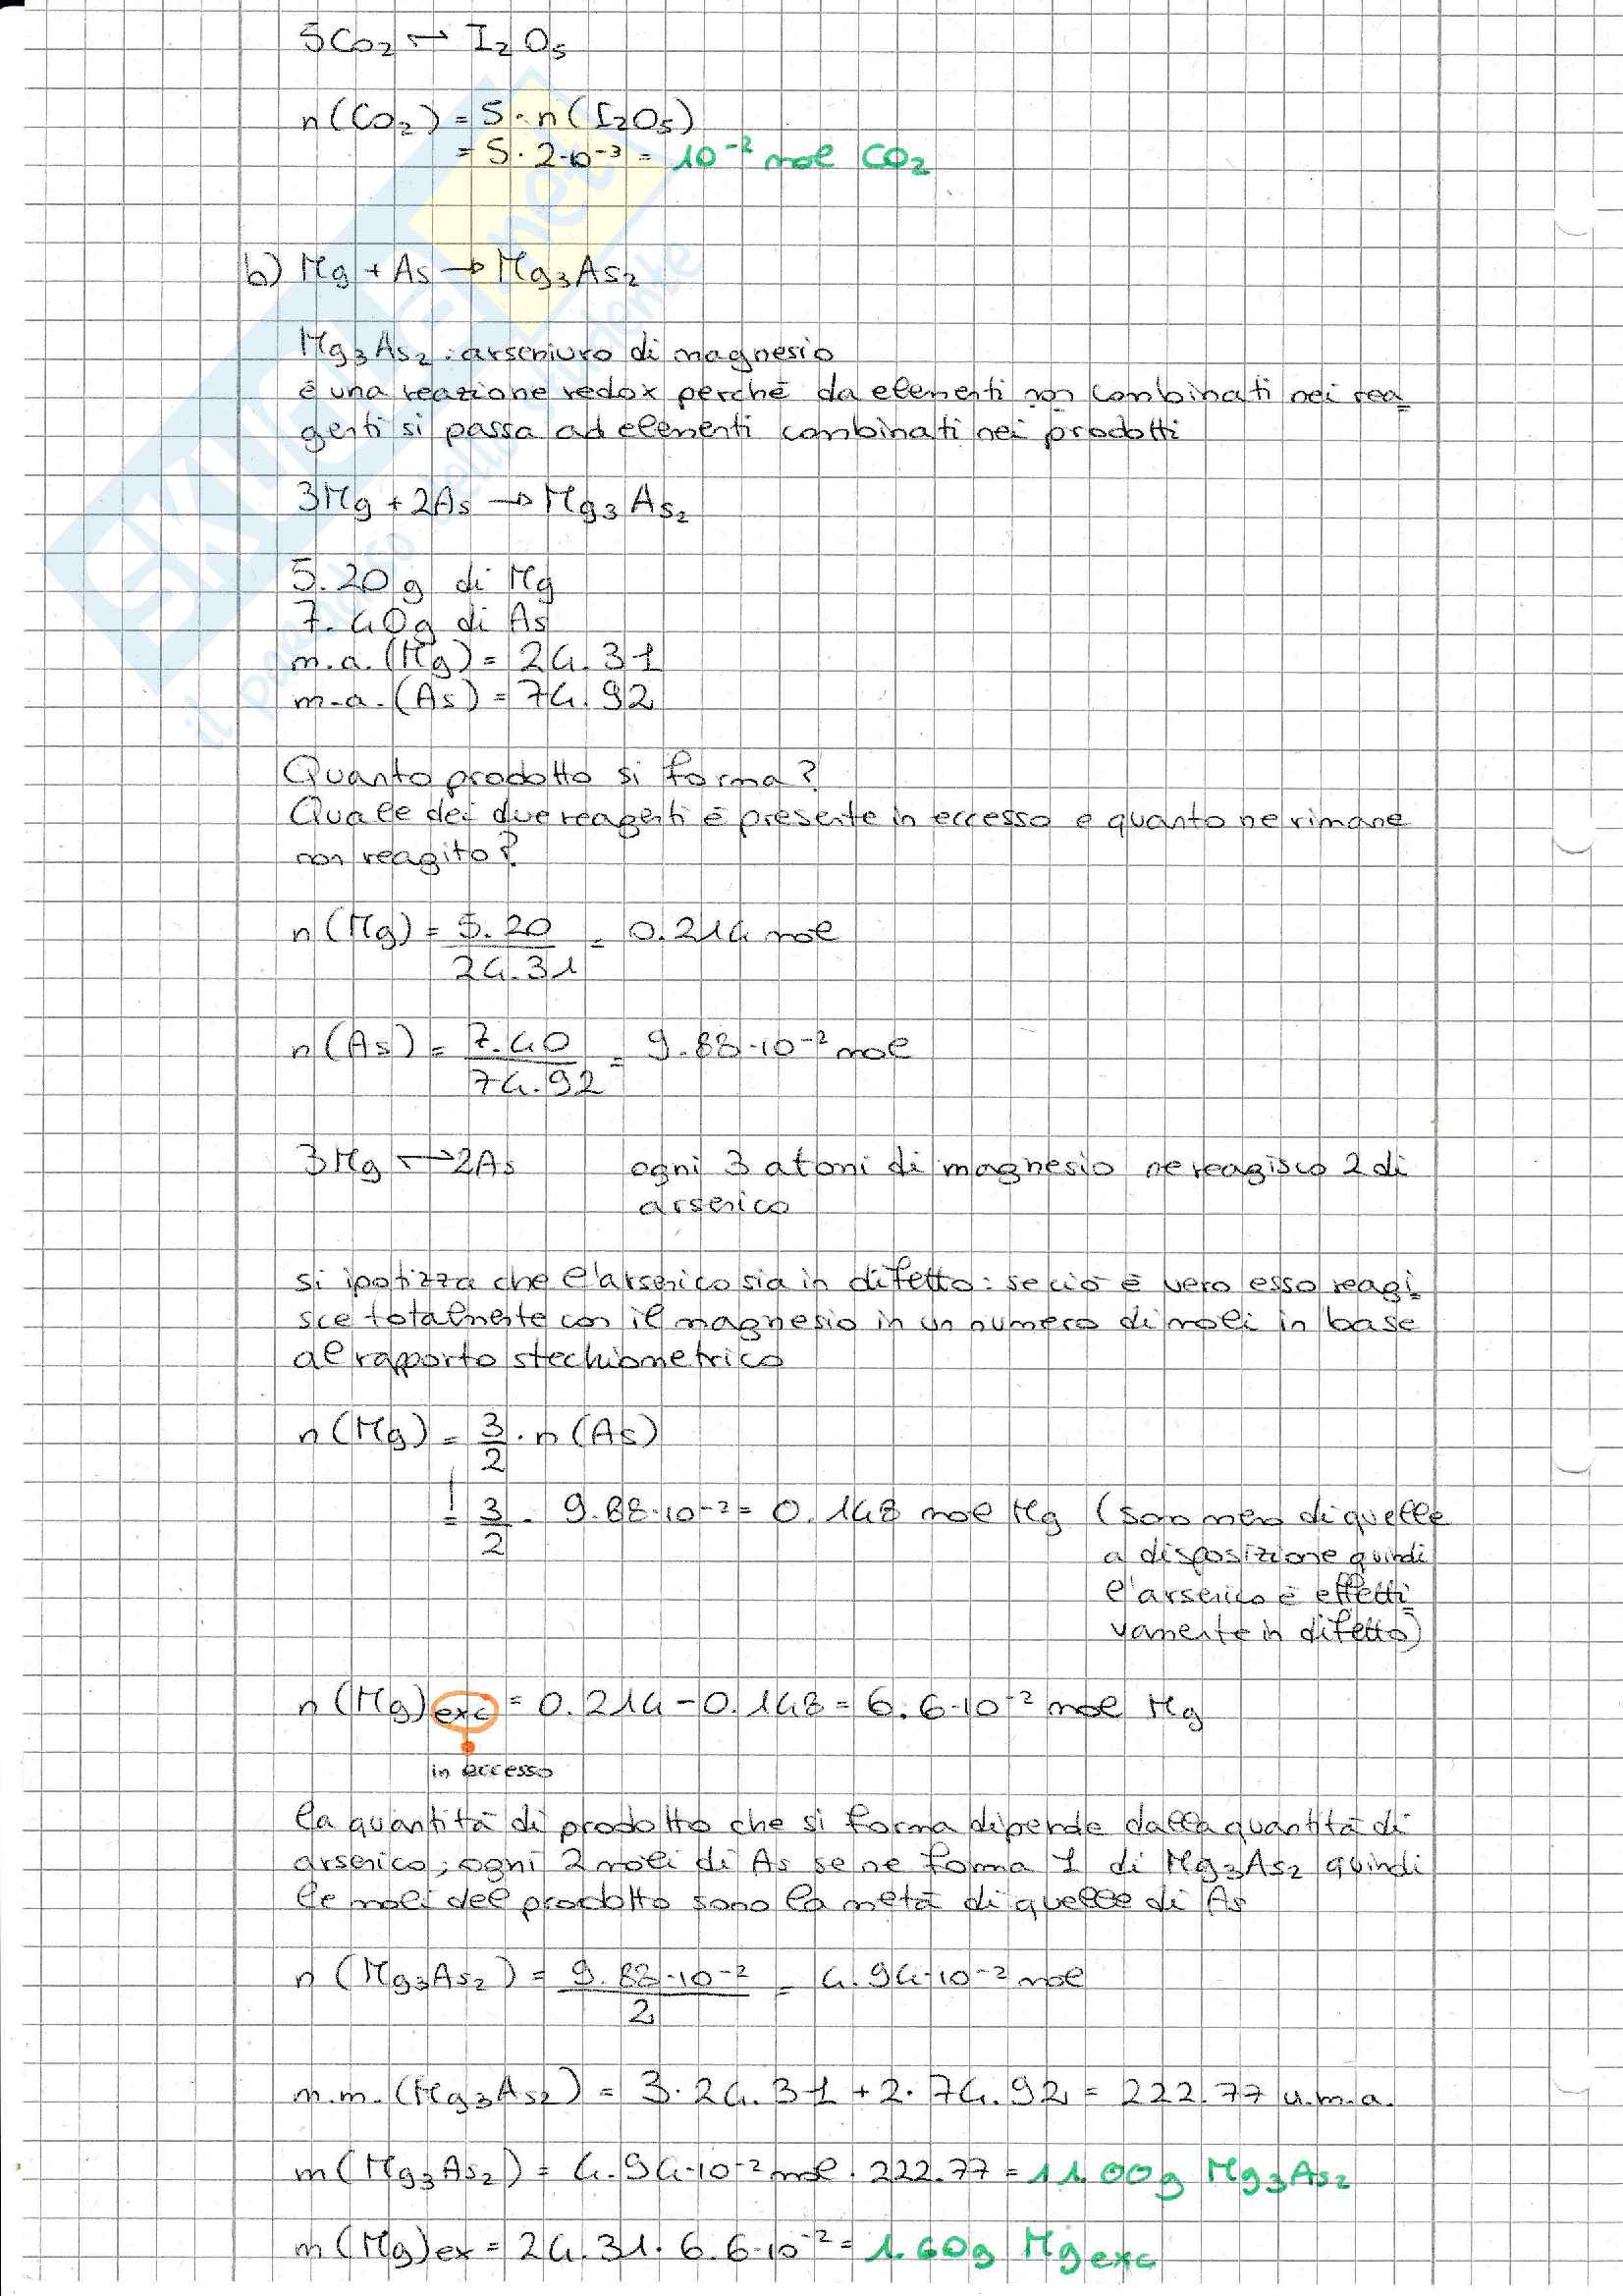 5CO₂ ↔ I₂O₅
n(CO₂) = 5 · n(I₂O₅)
= 5 · 2·10⁻³ = 10⁻² mol CO₂
b) Mg + As → Mg₃As₂
Mg₃As₂: arseniuro di magnesio
è una reazione redox perché da elementi non combinati nei rea=
genti si passa ad elementi combinati nei prodotti
3Mg + 2As → Mg₃As₂
5.20 g di Mg
7.40 g di As
m.a.(Mg) = 24.31
m.a.(As) = 74.92
Quanto prodotto si forma?
Quale dei due reagenti è presente in eccesso e quanto ne rimane
non reagito?
n(Mg) = 5.20 / 24.31 = 0.214 mol
n(As) = 7.40 / 74.92 = 9.88·10⁻² mol
3Mg ↔ 2As ogni 3 atomi di magnesio ne reagisco 2 di
arsenico
si ipotizza che l'arsenico sia in difetto: se ciò è vero esso reagi=
sce totalmente con il magnesio in un numero di moli in base
al rapporto stechiometrico
n(Mg) = 3/2 · n(As)
= 3/2 · 9.88·10⁻² = 0.148 mol Mg (sono meno di quelle
a disposizione quindi
l'arsenico è effetti=
vamente in difetto)
n(Mg)exc = 0.214 - 0.148 = 6.6·10⁻² mol Mg
in eccesso
la quantità di prodotto che si forma dipende dalla quantità di
arsenico; ogni 2 moli di As se ne forma 1 di Mg₃As₂ quindi
le moli del prodotto sono la metà di quelle di As
n(Mg₃As₂) = 9.88·10⁻² / 2 = 4.94·10⁻² mol
m.m.(Mg₃As₂) = 3·24.31 + 2·74.92 = 222.77 u.m.a.
m(Mg₃As₂) = 4.94·10⁻² mol · 222.77 = 11.00g Mg₃As₂
m(Mg)ex = 24.31 · 6.6·10⁻² = 1.60g Mg exc